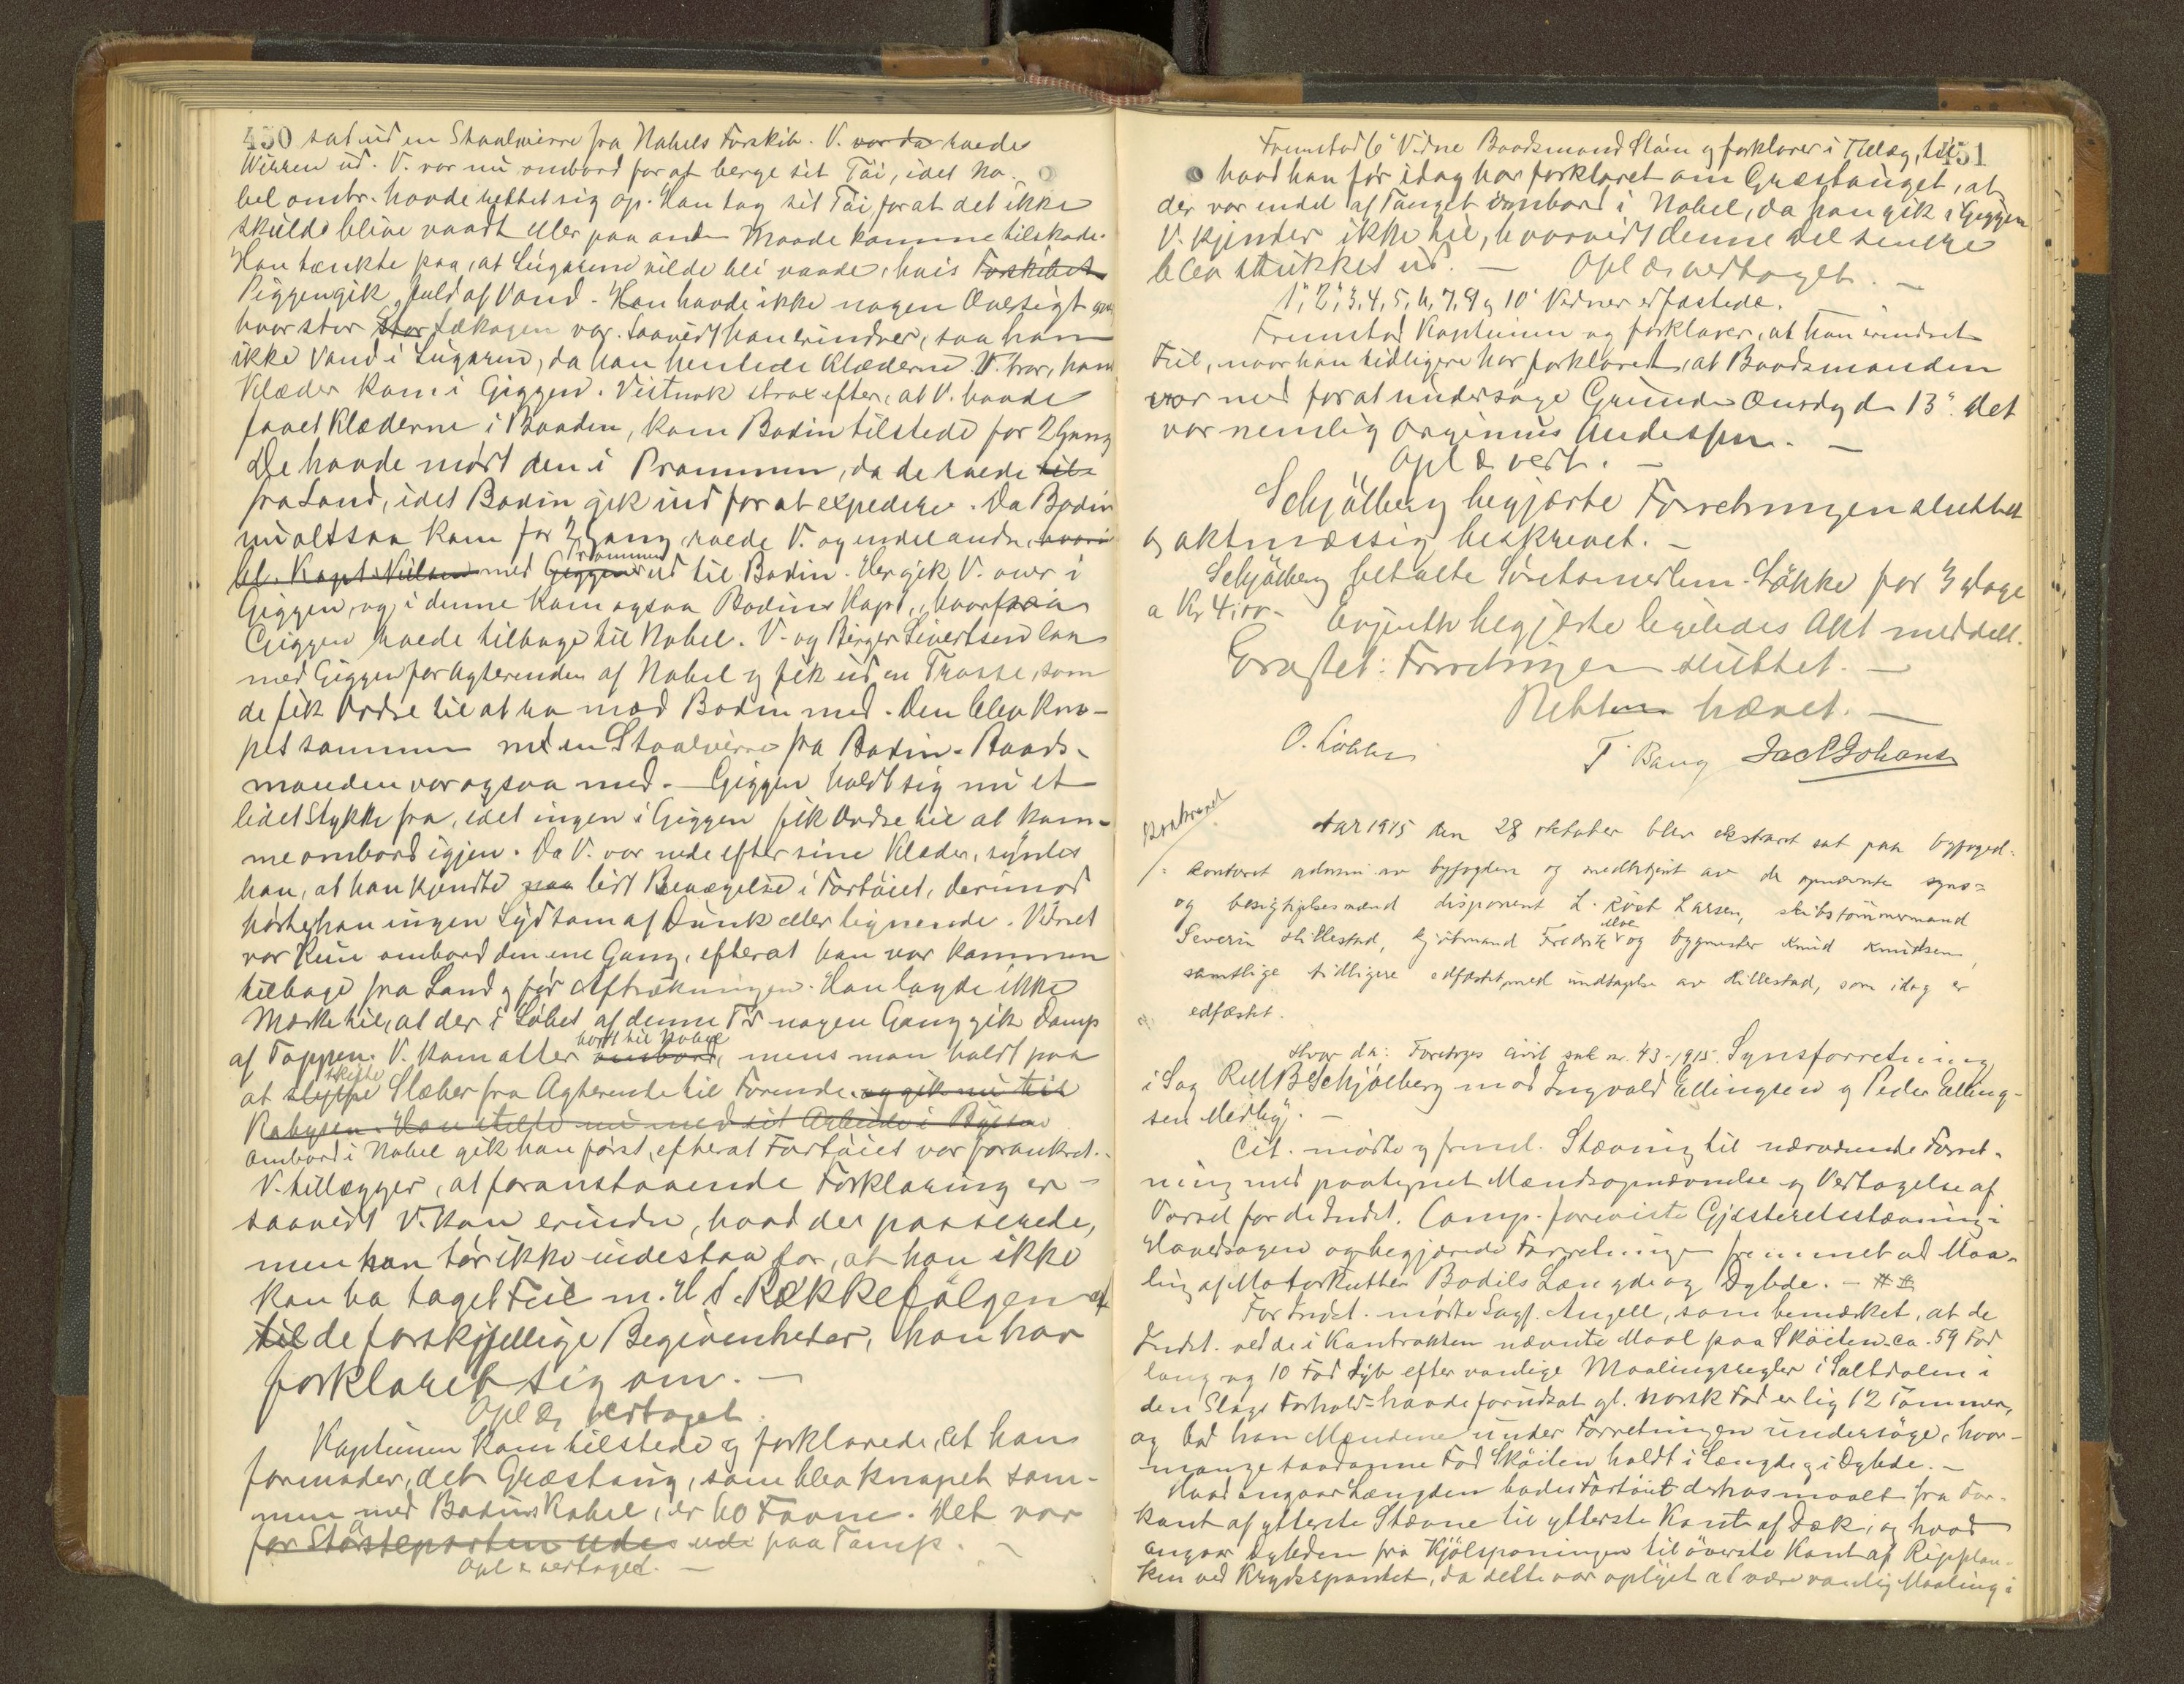 450 sat ud en Staalwirre fra Nobels Forskib. V. var da roede
Wirren ud. V. var nu ombord for at berge sit Töi, idet No-
bel ombr. havde rettet sig op. Han tog sit Töi for at det ikke
skulde blive vaadt eller paa anden Maade komme tilskade.
Han tænkte paa, at Lugarene vilde bli vaade, hvis Forskibet
Piggen gik fuld af Vand. Han havde ikke nogen Oversigt over,
hvor stor stor Lækagen var. Saavidt han erindrer, saa han
ikke Vand i Lugaren, da han hentede Klæderne. V. tror, hans
Klæder kom i Giggen. Vistnok strax efter, at V. havde
faaet Klæderne i Baaden, kom Bodin tilstede for 2 Gang
De havde mødt den i Prammen, da de roede til
fra Land, idet Bodin gik ind for at expedere. Da Bodin
nu altsaa kom for 2 Gang, roede V. og endel andre, hvori
bl. Kapt. Nielsen med Giggen Prammen ud til Bodin. Her gik V. over i
Giggen, og i denne kom ogsaa Bodins Kapt., hvorpaa
Giggen roede tilbage til Nobel. V. og Birger Sivertsen laa
med Giggen for Agterenden af Nobel og fik ud en Trosse, som
de fik Ordre til at ro mod Bodin med. Den blev kna-
pet sammen med en Staalwirre fra Bodin. Baads-
manden var ogsaa med. Giggen holdt sig nu et
lidet Stykke fra, idet ingen i Giggen fik Ordre til at kom-
me ombord igjen. Da V. var nede efter sine Klæder, syntes
han, at han kjendte paa lidt Bevægelse i Fartöiet, derimod
hørte han ingen Lyd som af Dunk eller lignende. Vidnet
var kun ombord den ene Gang, efterat han var kommen
tilbage fra Land og før Aftrækningen. Han lagde ikke
Mærke til, at der i Løbet af denne Tid nogen Gang gik Damp
af Toppen. V. kom atter ombord, bort til Nobel mens man holdt paa
at slyppe skifte Slæber fra Agterende til Forende. og gik nu til
Rabysen. Han stelte nu med sit Arbeide i Byssen
Ombord i Nobel gik han først, efterat Fartöiet var forankret.
V. tillægger, at foranstaaende Forklaring er
saavidt V. kan erindre, hvad der passerede,
men han tør ikke indestaa for, at han ikke
kan ha taget Feil m. H. t. Rækkefölgen af
til de forskjellige Begivenheder, han har
forklaret sig om. —
Opl. og vedtaget.
Kapteinen kom tilstede og forklarede, at han
formoder, det Græstaug, som blev knapet sam-
men med Bodins Kabel, er 60 Favne. Det var
for Störsteparten ude ude paa Tamp. —
Opl. & vedtaget. —

451
Fremstod 6' Vidne Baadsmand Stöen og forklarer i Tillæg, til
hvad han før idag har forklaret om Græstauget, at
der var endel af Tauget ombord i Nobel, da han gik i Giggen
V. kjender ikke til, hvorvidt denne Del senere
blev stukket ud. — Opl. & vedtaget. —
1', 2', 3, 4, 5, 6, 7, 9 og 10' Vidner edfæstede.
Fremstod Kapteinen og forklarer, at han erindret
Feil, naar han tidligere har forklaret, at Baadsmanden
var med for at undersøge Grunden Onsdag d. 13'. Det
var nemlig Orginius Andersen. —
Opl. & vedt. —
Schjölberg begjærte Forretningen sluttet
og aktmæssig beskrevet. —
Schjölberg betalte Søretsmedlem Løkke for 3 Dage
a Kr 4.00. Evjenth begjærte ligeledes Akt meddelt.
Eragtet: Forretningen sluttet. —
Retten hævet. —
O. Løkke T. Bang Jac P Johans
Beskrevet
Aar 1915 den 28 oktober blev ekstraret sat paa byfoged-
kontoret admin. av byfogden og medbetjent av de opnævnte syns-
og besigtigelsesmænd disponent L. Röst Larsen, skibstømmermand
Severin Hillestad, kjøbmand Fredrik Moe og bygmester Knud Knudsen,
samtlige tidligere edfæstet, med undtagelse av Hillestad, som idag er
edfæstet.
Hvor da: Foretoges civil sak nr. 43-1915. Synsforretning
i Sag Rell B Schjölberg mod Ingvald Ellingsen og Peder Elling-
sen Medby. —
Cit. mødte og freml. Stævning til nærværende Forret-
ning med paategnet Mændsopnævnelse og Vedtagelse af
Varsel for de Indst. Comp. foreviste Gjæsteretsstævning i
Hovedsagen og begjærede Forretningen fremmet ved Maa-
ling af Motorkutter Bodils Længde og Dybde. —
For Indst. mødte Sagf. Angell, som bemærket, at de
Indst. ved de i Kontrakten nævnte Maal paa Skøiten – ca. 59 Fod
lang og 10 Fod dyb efter vanlige Maalingsregler i Saltdalen i
den Slags Forhold – havde forudsat gl. norsk Fod er lig 12 Tommer,
og bad han Mændene under Forretningen undersöge, hvor-
mange saadanne Fod Skøiten holdt i Længde og i Dybde. —
Hvad angaar Længden bades Fartöiet derhos maalt fra For-
kant af ytterste Stævne til ytterste Kant af Dæk, og hvad
angaar Dybden fra Kjölspaningen til överste Kant af Ripplan-
ken ved Krydsspantet, da dette var oplyst at være vanlig Maaling i